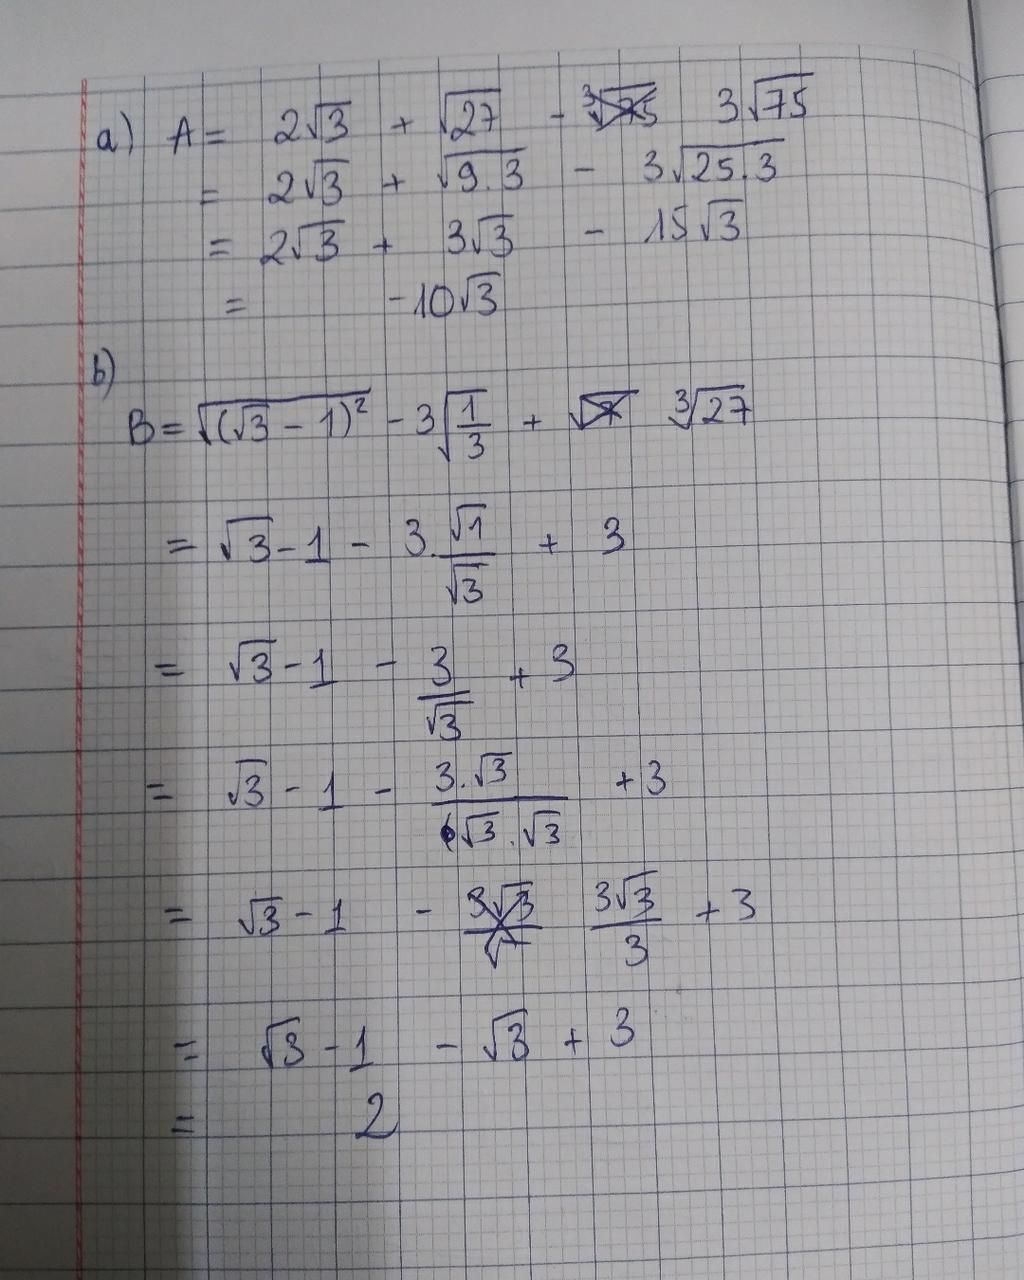 a) A = 2√3 + √27 - 3√75
= 2√3 + √9.3 - 3√25.3
= 2√3 + 3√3 - 15√3
= -10√3
b)
B = √(√3 - 1)² - 3√1/3 + ∛27
= √3 - 1 - 3.√1/√3 + 3
= √3 - 1 - 3/√3 + 3
= √3 - 1 - 3.√3/√3.√3 + 3
= √3 - 1 - 3√3/3 + 3
= √3 - 1 - √3 + 3
= 2